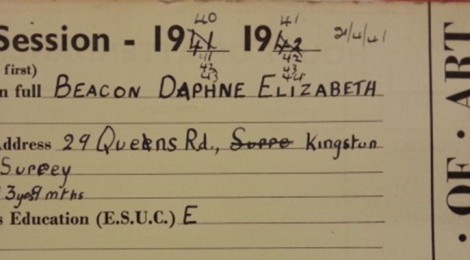 40 41
Session - 1941 1942 21/4/41
41 42
42 43
43 44
first)
n full BEACON DAPHNE ELIZABETH
Address 29 Queens Rd., Surre Kingston
Surrey
3 yrs 9 mths
s Education (E.S.U.C.) E
· OF · ART